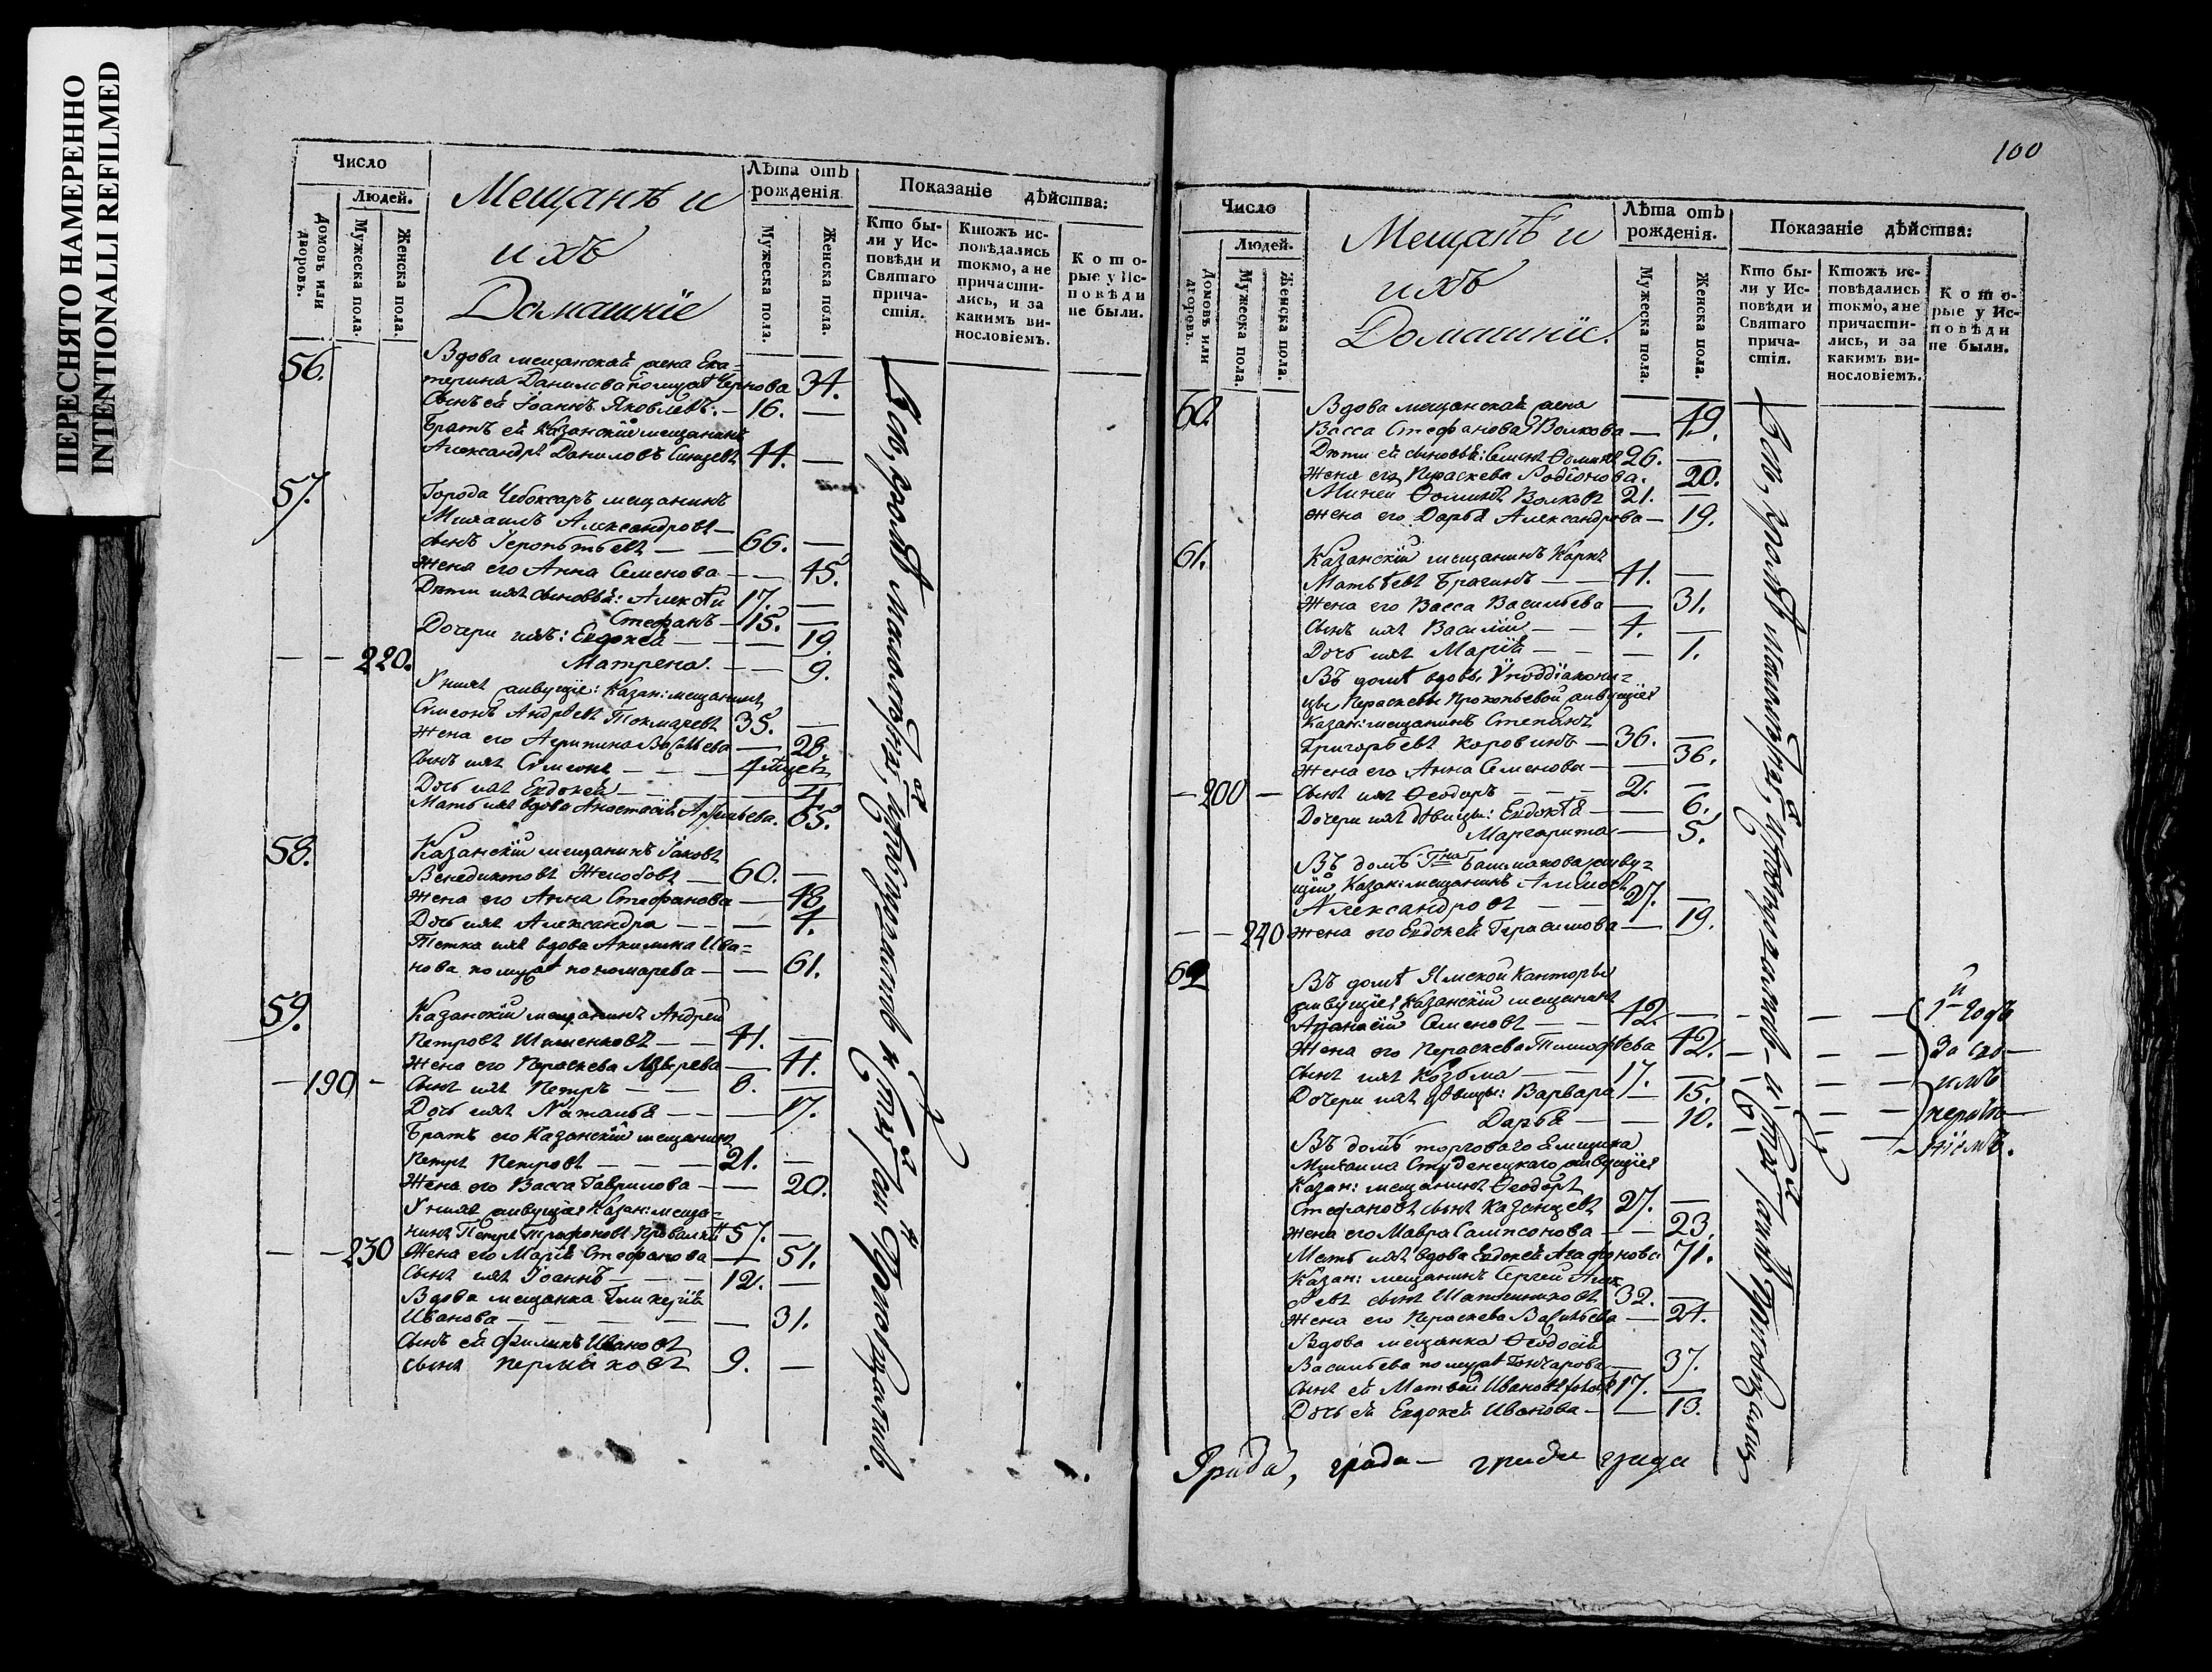 ПЕРЕСНЯТО НАМЕРЕННО
INTENTIONALLI REFILMED
Число
Людей.
Домовъ или дворовъ.
Мужеска пола.
Женска пола.
Мещанѣ и
ихъ
Домашніе
Лѣта отъ рожденія
Мужеска пола.
Женска пола.
Показаніе дѣйства:
Кто были у Исповѣди и Святаго причастія.
Ктожъ исповѣдались токмо, а не причастились, и за какимъ винословіемъ.
Которые у Исповѣди не были.
56. Вдова мещанская жена Ека=
терина Данилова по мужѣ Чернова 34.
Сынъ ея Іоаннъ Яковлевъ. — 16. —
Братъ ея Казанскій мещанинъ
Александръ Даниловъ 44. —
57. Города Чебоксаръ мещанинъ
Михаилъ Александровъ —
сынъ — — 66. —
Жена его Анна Семенова — — 45.
Дѣти ихъ сыновья: Алексѣй 17. —
Стефанъ — 15. —
Дочери ихъ: Евдокея — — — 19.
— — 220. Матрена. — — 9.
У нихъ живущіе: Казан: мещанинъ
Симеонъ Андреевъ Токмачевъ 35. —
Жена его Агрипина Васильева — 28.
Сынъ ихъ Симеонъ — — — 4 мцѣв
Дочь ихъ Евдокея — — — — 4.
Мать ихъ вдова Анастасія 65.
58. Казанскій мещанинъ Іаковъ
Венедиктовъ Желобовъ — 60. —
Жена его Анна Стефанова — 48.
Дочь ихъ Александра — — — 4.
Тетка ихъ вдова Акилина Ива=
нова по мужѣ пономарева — — 61.
59. Казанскій мещанинъ Андрей
Петровъ — — 41. —
Жена его Параскева — 41.
— 190 — Сынъ ихъ Петръ — — 8. —
Дочь ихъ Наталья — — — 17.
Братъ его Казанскій мещанинъ
Петръ Петровъ — — — 21. —
Жена его Васса Гаврилова — — 20.
У нихъ живущіе Казан: меща=
нинъ Петръ 57. —
— — 230 Жена его Марія Стефанова — 51.
Сынъ ихъ Іоаннъ — — — 12. —
Вдова мещанка Гликерія
Иванова — — — — — — 31.
Сынъ ея Филипъ Ивановъ
сынъ Пермяковъ 9. —
100
Число
Людей.
Домовъ или дворовъ.
Мужеска пола.
Женска пола.
Мещанѣ и
ихъ
Домашніи.
Лѣта отъ рожденія.
Мужеска пола.
Женска пола.
Показаніе дѣйства:
Кто были у Исповѣди и Святаго причастія.
Ктожъ исповѣдались токмо, а не причастились, и за какимъ винословіемъ.
Которые у Исповѣди не были.
60. Вдова мещанская жена
Васса Стефанова Волкова — 49.
Дѣти ея сыновья: Семенъ Ѳоминъ 26. —
Жена его Параскева Родіонова. 20.
Миней Ѳоминъ Волковъ 21. —
Жена его Дарья Александрова — 19.
61. Казанскій мещанинъ Карпъ
Матвѣевъ Брагинъ — — 41. —
Жена его Васса Васильева — 31.
Сынъ ихъ Василій — — 4. —
Дочь ихъ Марія — — — 1.
Въ домѣ вдовы Уподдіакони=
цы Параскевы Прокопьевой живущіе
Казан: мещанинъ Степанъ
Григорьевъ Коровинъ — 36. —
Жена его Анна Семенова — — 36.
— 200 — Сынъ ихъ Ѳеодоръ — — — 2. —
Дочери ихъ дѣвицы: Евдокѣя — 6.
Маргарита — 5.
Въ домѣ Гна Башмакова живу=
щій Казан: мещанинъ
Александровъ — — 27. —
— — 240 Жена его Евдокея Герасимова — 19.
62 Въ домѣ Ямской Канторы
живущіе Казанскій мещанинъ
Афанасій Семеновъ — — 42. —
Жена его Параскева Тимофѣева 42.
Сынъ ихъ Козьма — — 17. —
Дочери ихъ дѣвицы: Варвара — 15.
Дарья — — 10.
Въ домѣ торговаго Ямщика
Михаила Студенецкаго живущіе
Казан: мещанинъ Ѳеодоръ
Стефановъ сынъ Казанцевъ 27. —
Жена его Мавра Сампсонова — — 23.
Мать ихъ вдова Евдокея Агафонова 71.
Казан: мещанинъ Сергей Алек
сѣевъ сынъ Шапошниковъ 32. —
Жена его Параскева Васильева — 24.
Вдова мещанка Ѳеодосія
Васильева по мужѣ Гончарова — 37.
Сынъ ея Матвей Ивановъ 17. —
Дочь ея Евдокея Иванова — — 13.
Всѣ, кромѣ малолѣтн